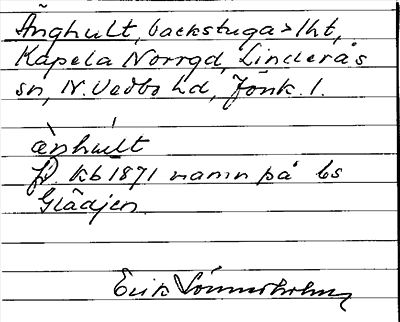 Änghult, backstuga > lht,
Kapela Norrgd, Linderås
sn, N. Vedbo hd, Jönk. l.
ænhult
Kb 1871 namn på bs
Glädjen
Erik